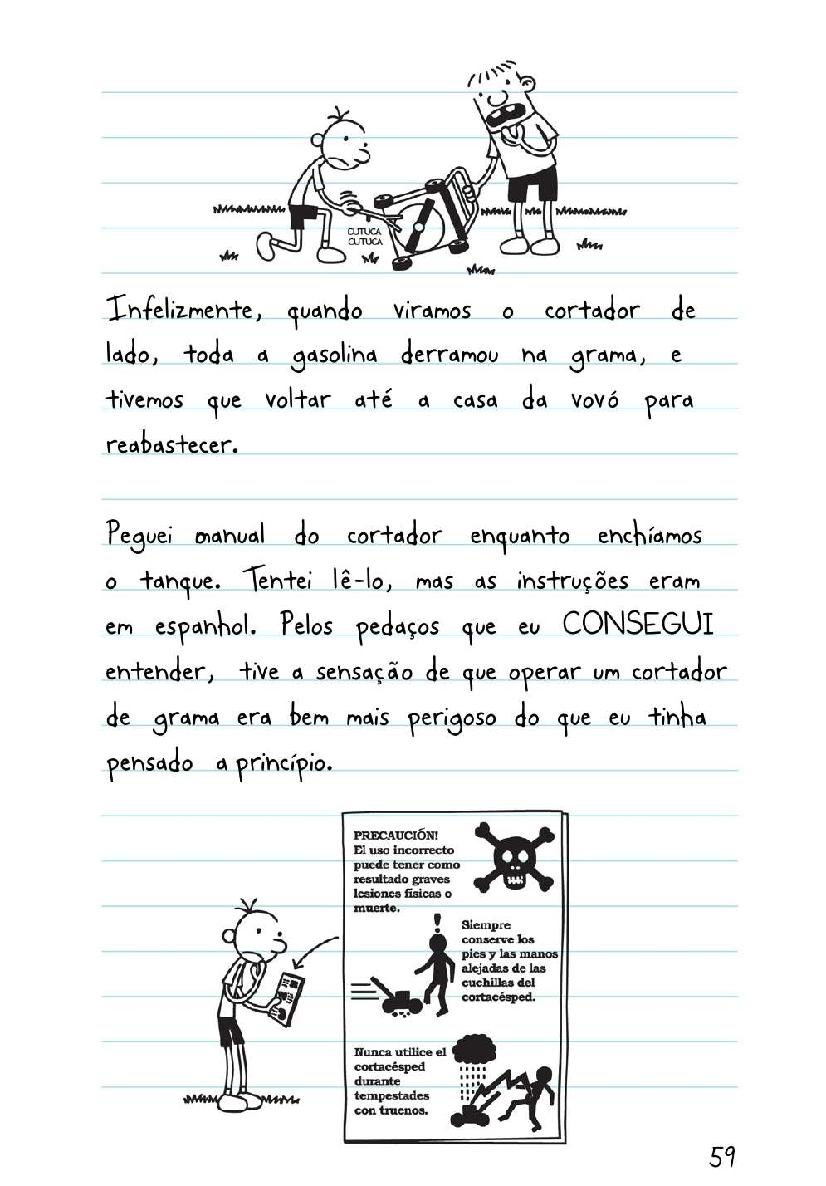 CUTUCA
CUTUCA
Infelizmente, quando viramos o cortador de
lado, toda a gasolina derramou na grama, e
tivemos que voltar até a casa da vovó para
reabastecer.
Peguei manual do cortador enquanto enchíamos
o tanque. Tentei lê-lo, mas as instruções eram
em espanhol. Pelos pedaços que eu CONSEGUI
entender, tive a sensação de que operar um cortador
de grama era bem mais perigoso do que eu tinha
pensado a princípio.
PRECAUCIÓN!
El uso incorrecto
puede tener como
resultado graves
lesiones físicas o
muerte.
!
Siempre
conserve los
pies y las manos
alejadas de las
cuchillas del
cortacésped.
Nunca utilice el
cortacésped
durante
tempestades
con truenos.
59